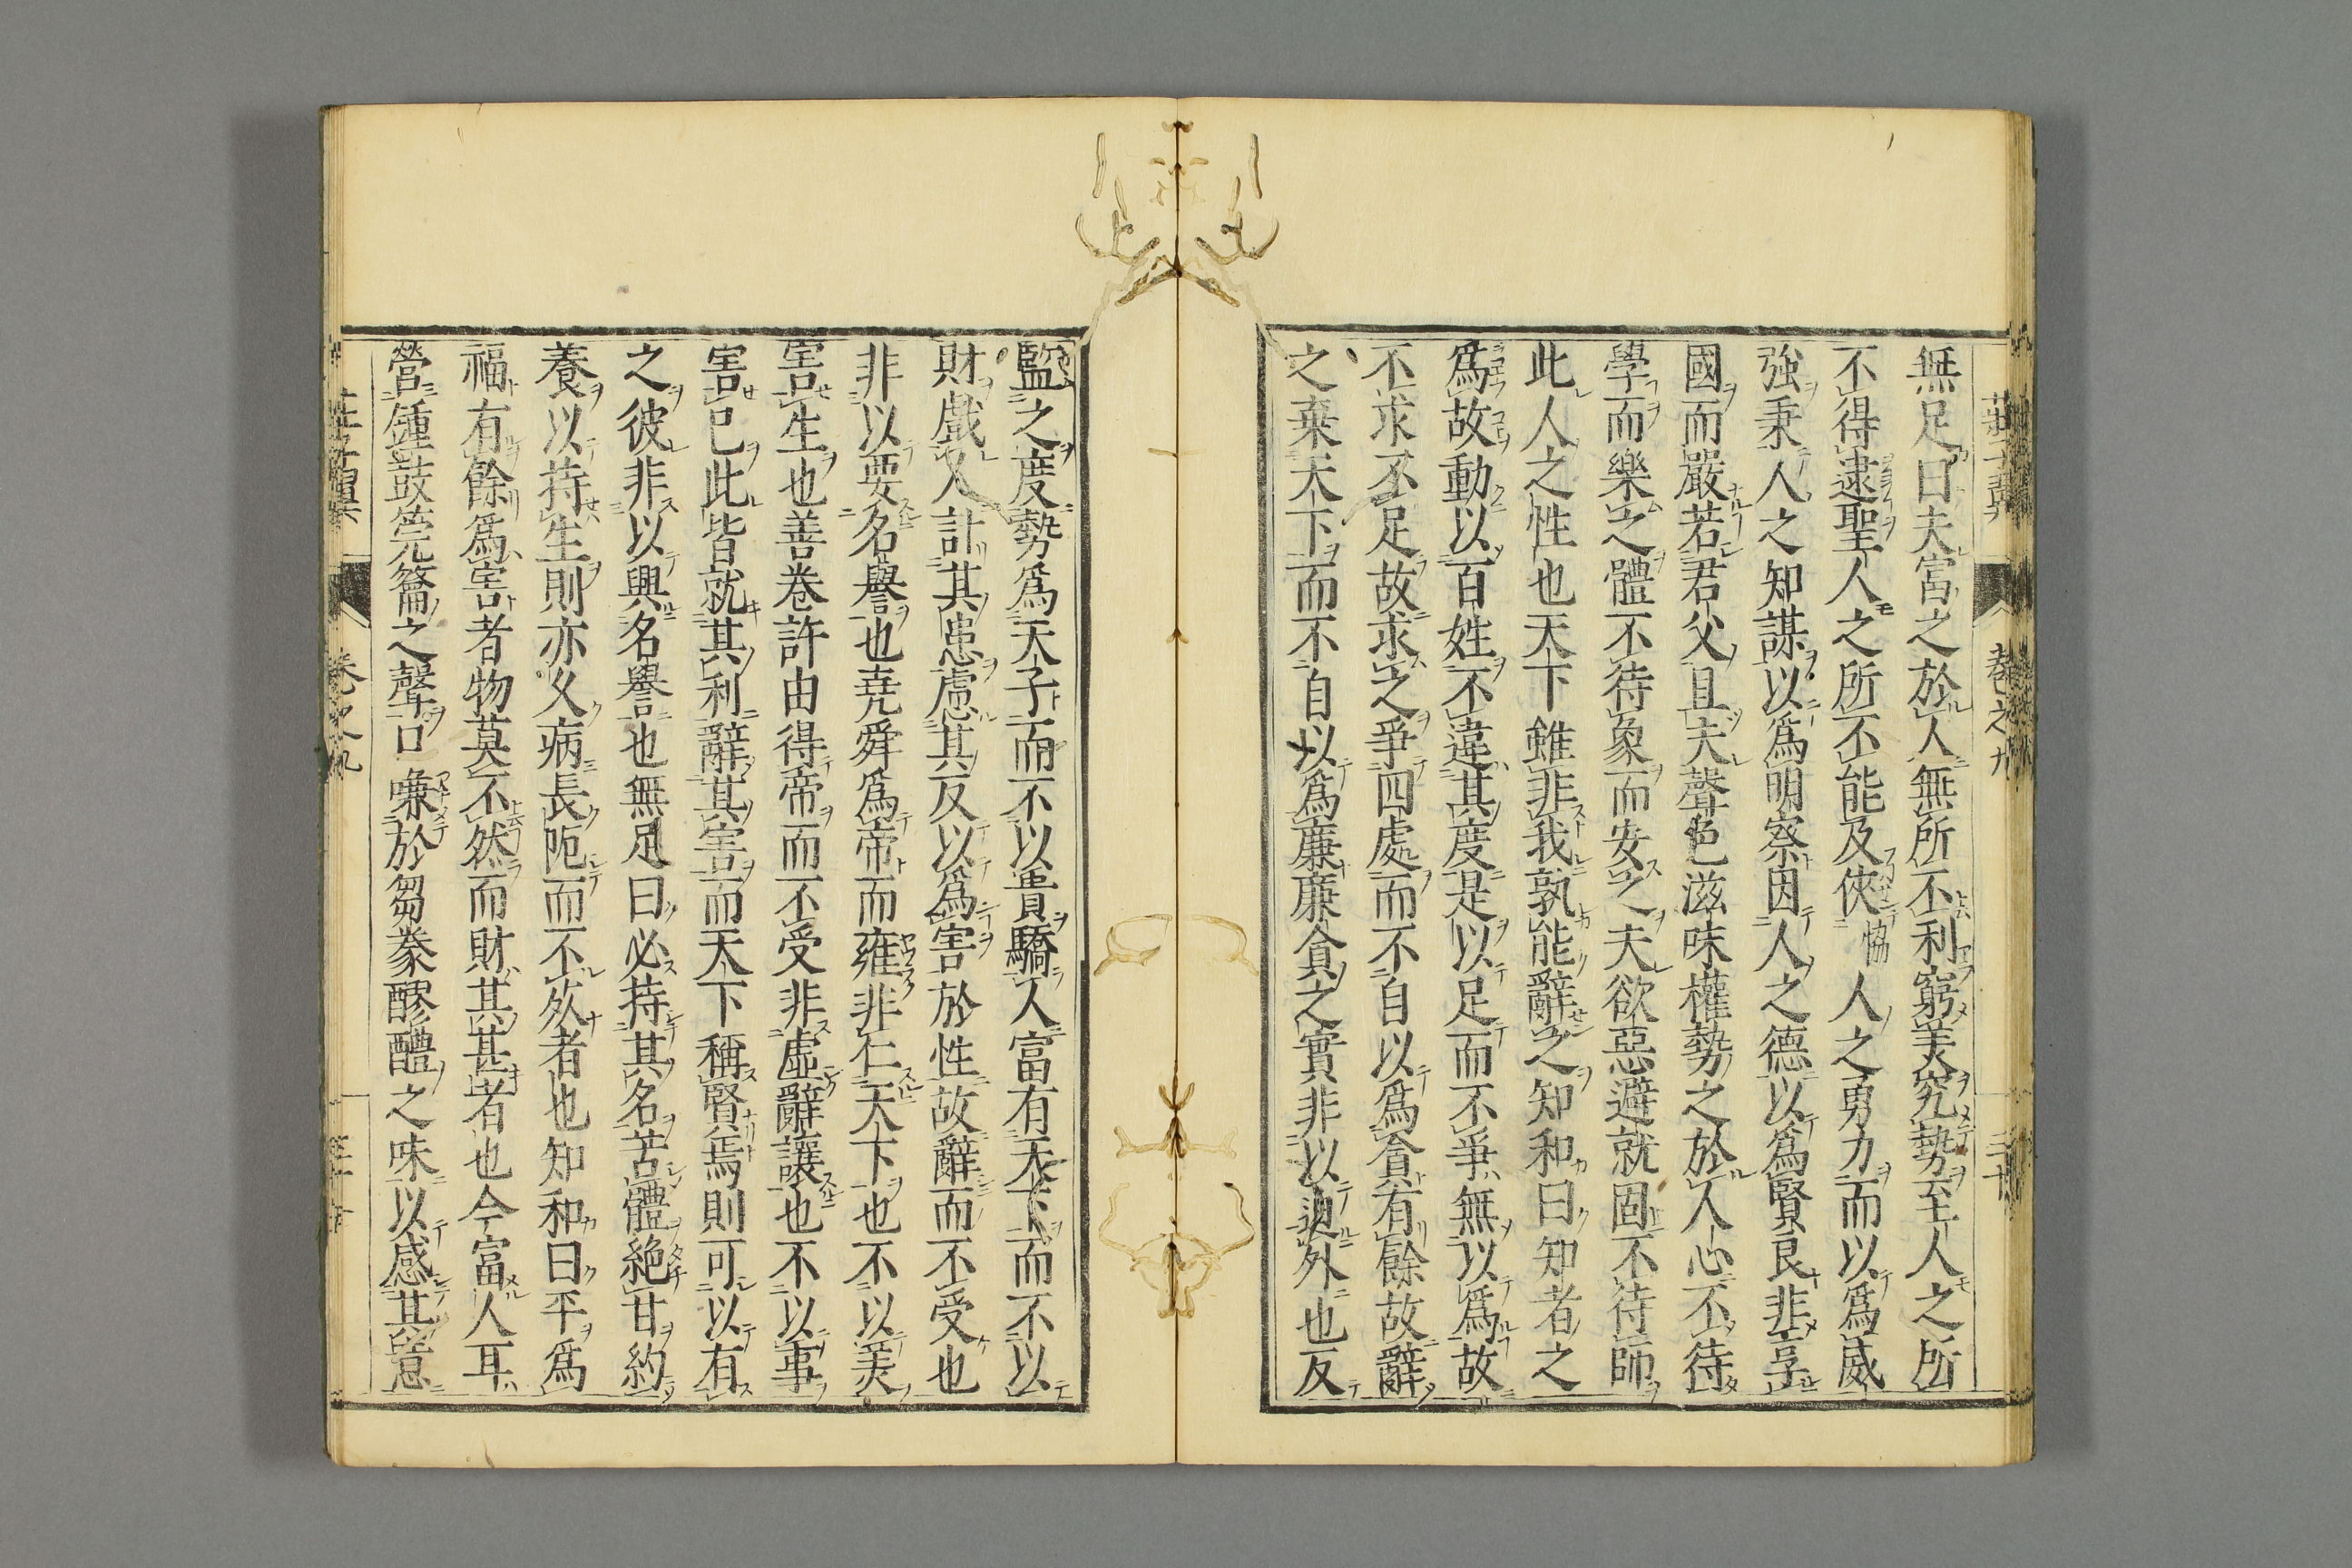 無足曰夫富之於人無所不利窮美究勢至人之所
不得逮聖人之所不能及俠恊人之勇力而以爲威
強秉人之知謀以爲明察因人之德以爲賢良非享
國而嚴若君父且夫聲色滋味權勢之於人心不待
學而樂之體不待象而安之夫欲惡避就固不待師
此人之性也天下雖非我孰能辭之知和曰知者之
爲故動以百姓不違其度是以足而不爭無以爲故
不求不足故求之爭四處而不自以爲貪有餘故辭
之棄天下而不自以爲廉廉貪之實非以迫外也反
監之度勢爲天子而不以貴驕人富有天下而不以
財戲人計其患慮其反以爲害於性故辭而不受也
非以要名譽也堯舜爲帝而雍非仁天下也不以美
害生也善卷許由得帝而不受非虛辭讓也不以事
害己此皆就其利辭其害而天下稱賢焉則可以有
之彼非以興名譽也無足曰必持其名苦體絕甘約
養以持生則亦久病長阨而不死者也知和曰平爲
福有餘爲害者物莫不然而財其甚者也今富人耳
營鍾鼓筦籥之聲口嗛於芻豢醪醴之味以感其意
莊子翼 卷之九